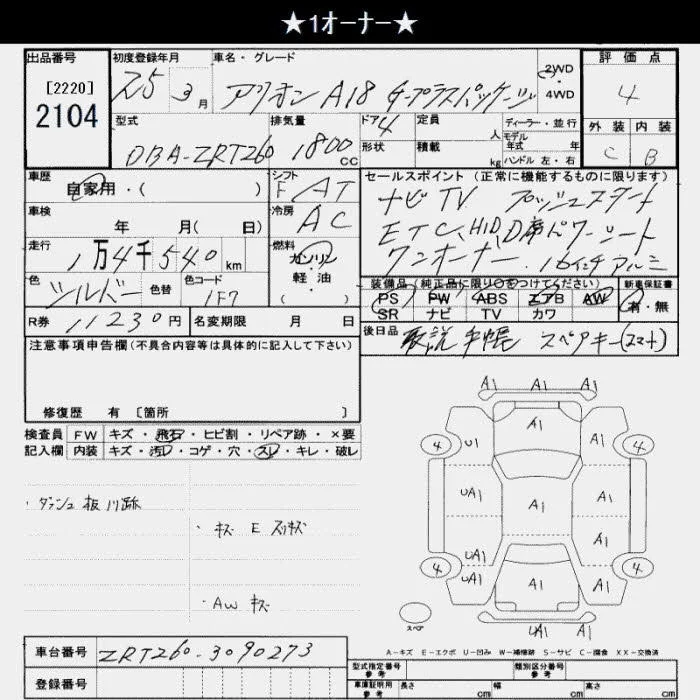 ★1ｵｰﾅｰ★
出品番号 初度登録年月 車名・グレード 評価点
[2220] 25 3月 アリオン A18 G-プラスパッケージ 2WD・4WD 4
2104
型式 排気量 ドア 4 定員 人 ディーラー・並行 外装 内装
DBA-ZRT260 1800cc 形状 積載 kg モデル年式 年 ハンドル 左・右 C B
車歴 自家用・( ) シフト F AT セールスポイント (正常に機能するものに限ります)
ナビ TV プッシュスタート
車検 年 月( 日) 冷房 AC ETC, HID, D席パワーシート
走行 1万4千540km 燃料 ガソリン・軽油( ) ワンオーナー. 16インチアルミ
色 シルバー 色替 色コード 1F7 装備品 (純正品に限り○をつけてください) 新車保証書
PS PW ABS エアB AW 有・無
R券 11230円 名変期限 月 日 SR ナビ TV カワ
注意事項申告欄(不具合内容等は具体的に記入して下さい) 後日品 取説 手帳 スペアキー(スマート)
修復歴 有 〔箇所 〕
検査員 FW キズ・飛石・ヒビ割・リペア跡・×要
記入欄 内装 キズ・汚レ・コゲ・穴・スレ・キレ・破レ
・キズ E スリキズ
・AW キズ
A1 A1 A1
A1
4 U1 A1 4
UA1 A1 A1
UA1 A1
4 UA1 A1 A1 4
スペア UA1 A1
A-キズ E-エクボ U-凹み W-補修跡 S-サビ C-腐食 XX-交換済
車台番号 ZRT260-3090273 型式指定番号 参考 類別区分番号 参考
登録番号 車庫証明用 参考 長さ cm 幅 cm 高さ cm